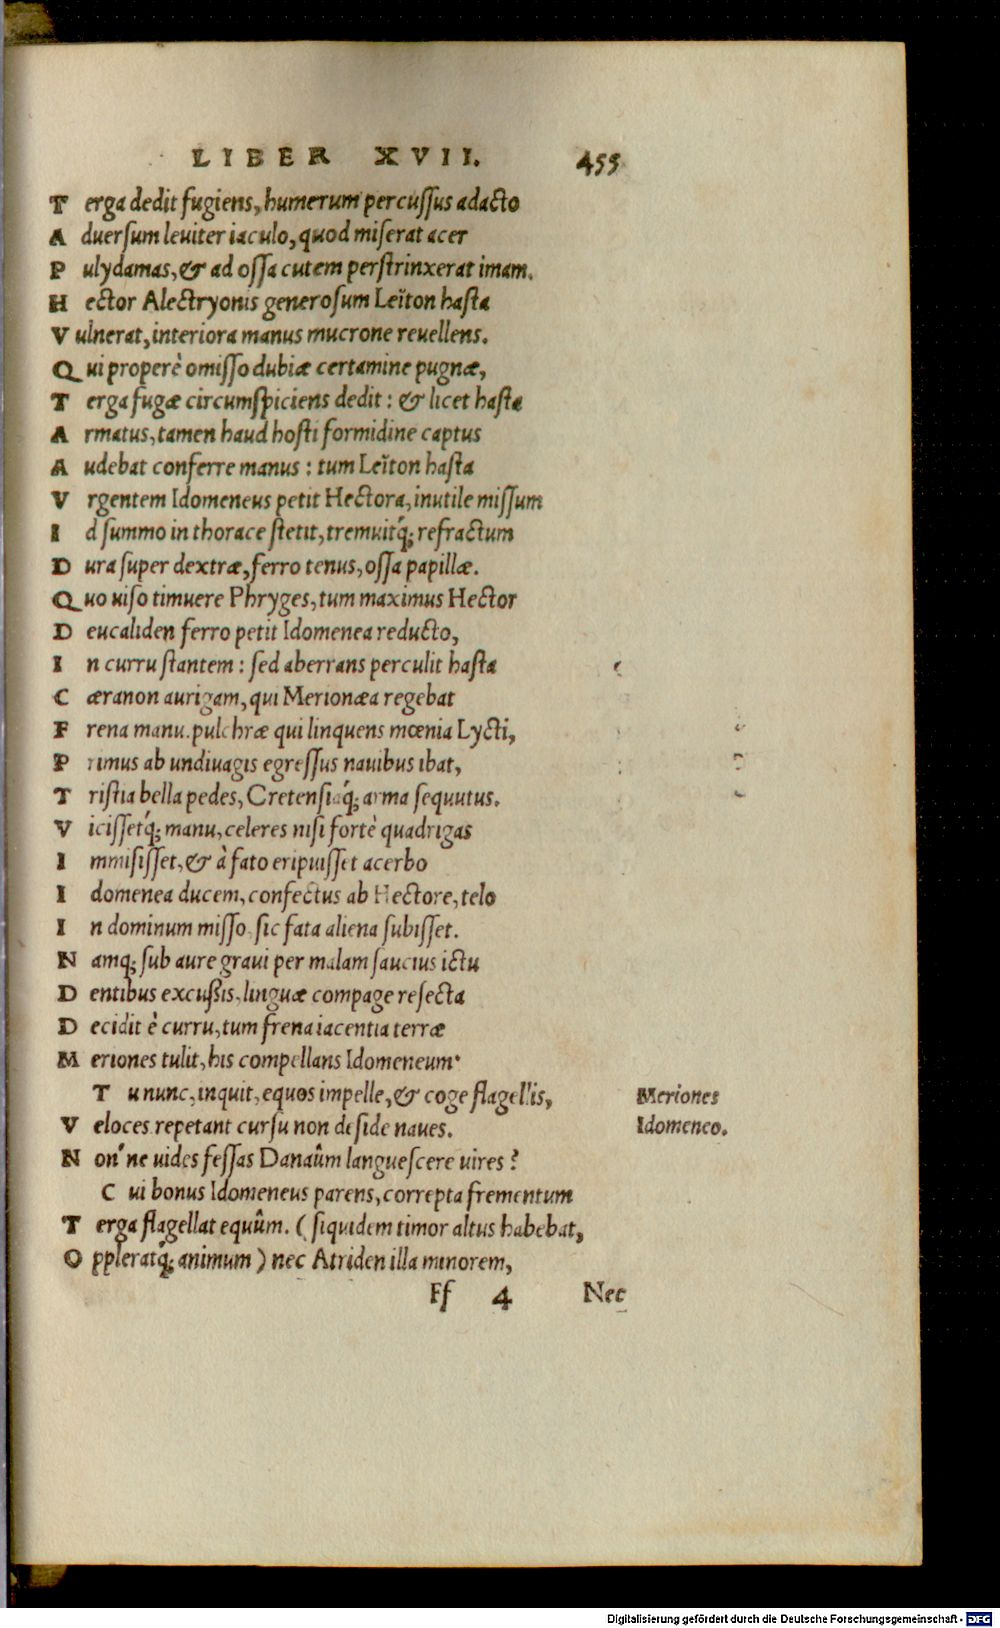 LIBER XVII. 455
Terga dedit fugiens, humerum percuſſus adacto
Aduerſum leuiter iaculo, quod miſerat acer
Pulydamas, & ad oſſa cutem perſtrinxerat imam.
Hector Alectryonis generoſum Leïton haſta
Vulnerat, interiora manus mucrone reuellens.
Qui properè omiſſo dubiæ certamine pugnæ,
Terga fugæ circumſpiciens dedit: & licet haſta
Armatus, tamen haud hoſti formidine captus
Audebat conferre manus: tum Leïton haſta
Vrgentem Idomeneus petit Hectora, inutile miſſum
Id ſummo in thorace ſtetit, tremuitq́; refractum
Dura ſuper dextræ, ferro tenus, oſſa papillæ.
Quo uiſo timuere Phryges, tum maximus Hector
Deucaliden ferro petit Idomenea reducto,
In curru ſtantem: ſed aberrans perculit haſta
Cæranon aurigam, qui Merionæa regebat
Frena manu. pulchræ qui linquens mœnia Lycti,
Primus ab undiuagis egreſſus nauibus ibat,
Triſtia bella pedes, Cretenſiaq́; arma ſequutus.
Viciſſetq́; manu, celeres niſi fortè quadrigas
Immiſiſſet, & à fato eripuiſſet acerbo
Idomenea ducem, confectus ab Hectore, telo
In dominum miſſo. ſic fata aliena ſubiſſet.
Namq; ſub aure graui per malam ſaucius ictu
Dentibus excußis, linguæ compage reſecta
Decidit è curru, tum frena iacentia terræ
Meriones tulit, his compellans Idomeneum.
Tu nunc, inquit, equos impelle, & coge flagellis, Meriones
Veloces repetant curſu non deſide naues. Idomeneo.
Non' ne uides feſſas Danaûm langueſcere uires?
Cui bonus Idomeneus parens, correpta frementum
Terga flagellat equûm. (ſiquidem timor altus habebat,
Oppleratq́; animum) nec Atriden illa minorem,
Ff 4 Nec
Digitalisierung gefördert durch die Deutsche Forschungsgemeinschaft - DFG